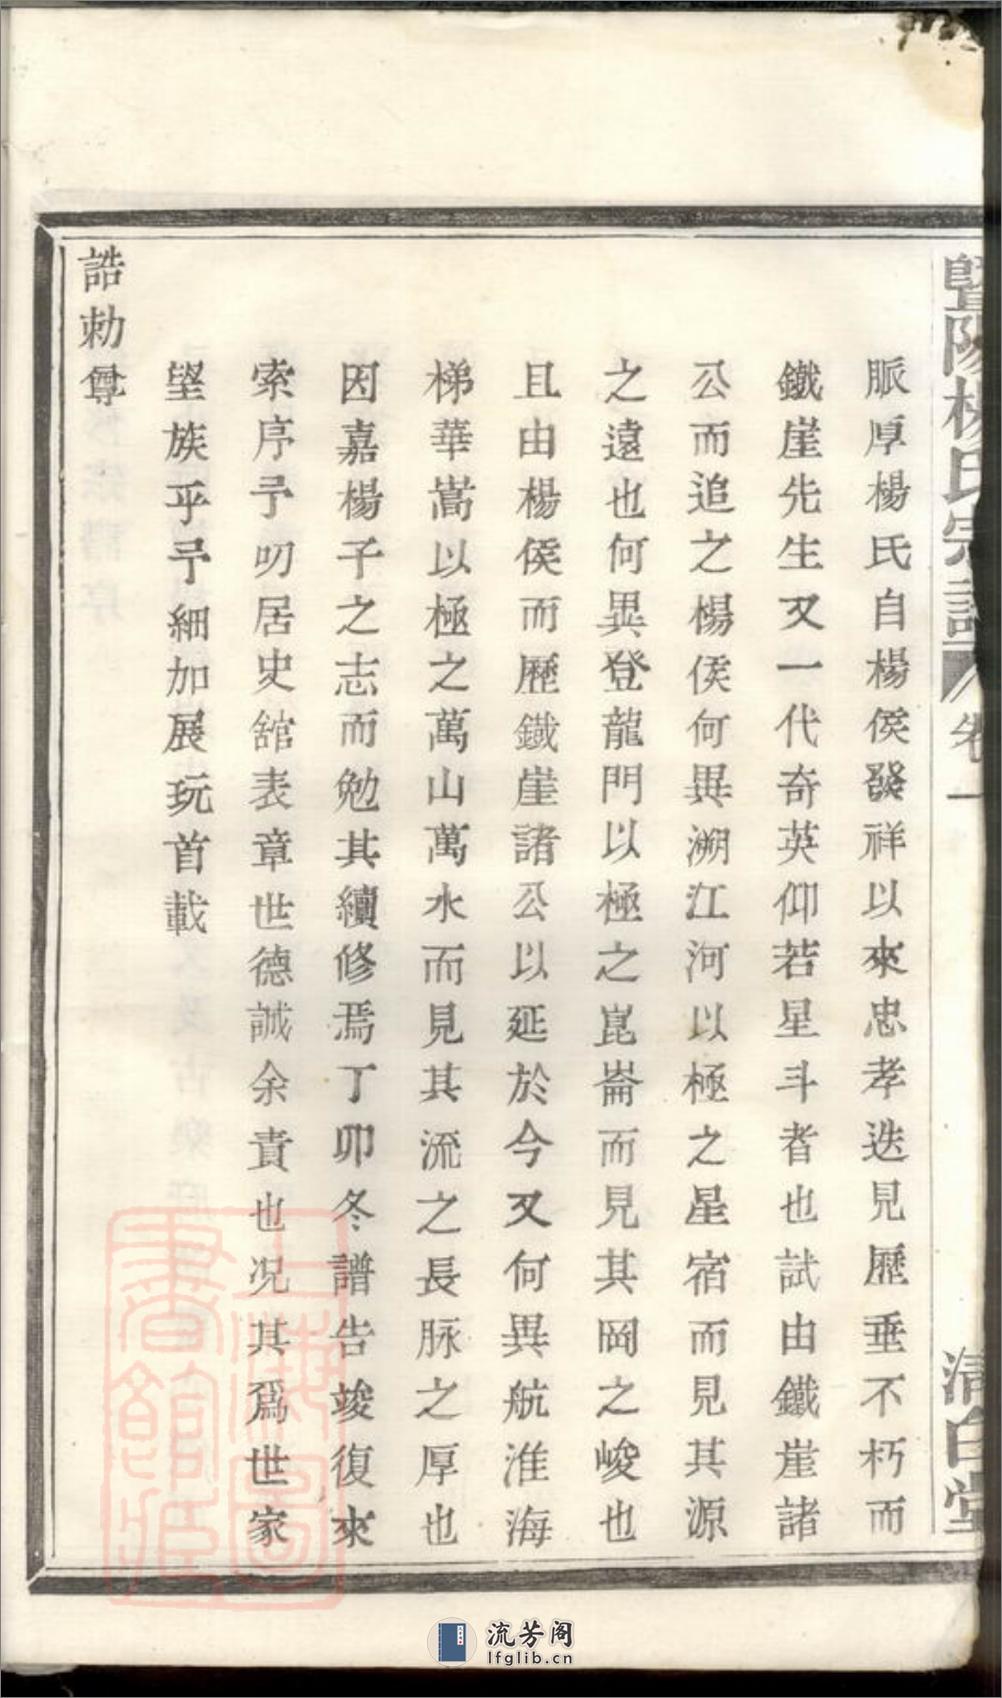 暨陽楊氏宗譜 卷一 清白堂
脈厚楊氏自楊侯發祥以來忠孝迭見歷垂不朽而
鐵崖先生又一代奇英仰若星斗者也試由鐵崖諸
公而追之楊侯何異溯江河以極之星宿而見其源
之遠也何異登龍門以極之崑崙而見其岡之峻也
且由楊侯而歷鐵崖諸公以延於今又何異航淮海
梯華嵩以極之萬山萬水而見其流之長脉之厚也
因嘉楊子之志而勉其續修焉丁卯冬譜告竣復來
索序予叨居史舘表章世德誠余責也况其爲世家
望族乎予細加展玩首載
誥勅尊
上海圖書館藏
流芳阁
lfglib.cn